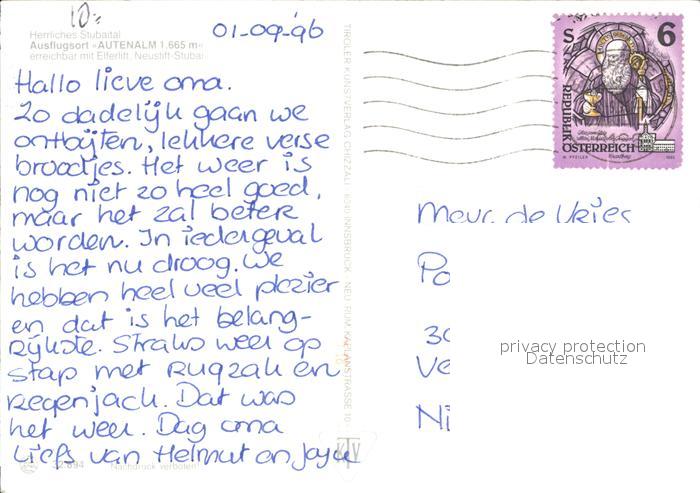 10,-
01-09-96
Herrliches Stubaital
Ausflugsort »AUTENALM 1.665 m«
erreichbar mit Elferlift, Neustift-Stubai
Hallo lieve oma.
Zo dadelijk gaan we
ontbijten, lekkere verse
broodjes. Het weer is
nog niet zo heel goed,
maar het zal beter
worden. In iedergeval
is het nu droog. We
hebben heel veel plezier
en dat is het belang-
rijkste. Straks weer op
stap met rugzak en
regenjack. Dat was
het weer. Dag oma
Liefs van Helmut en Joyce
32.894 Nachdruck verboten
TIROLER KUNSTVERLAG CHIZZALI 6020 INNSBRUCK, NEU-RUM KAPLANSTRASSE 10
KTV
S 6
REPUBLIK
ÖSTERREICH
W. PFEILER
Mevr. de Vries
Po
30
Ve
Ni
privacy protection
Datenschutz